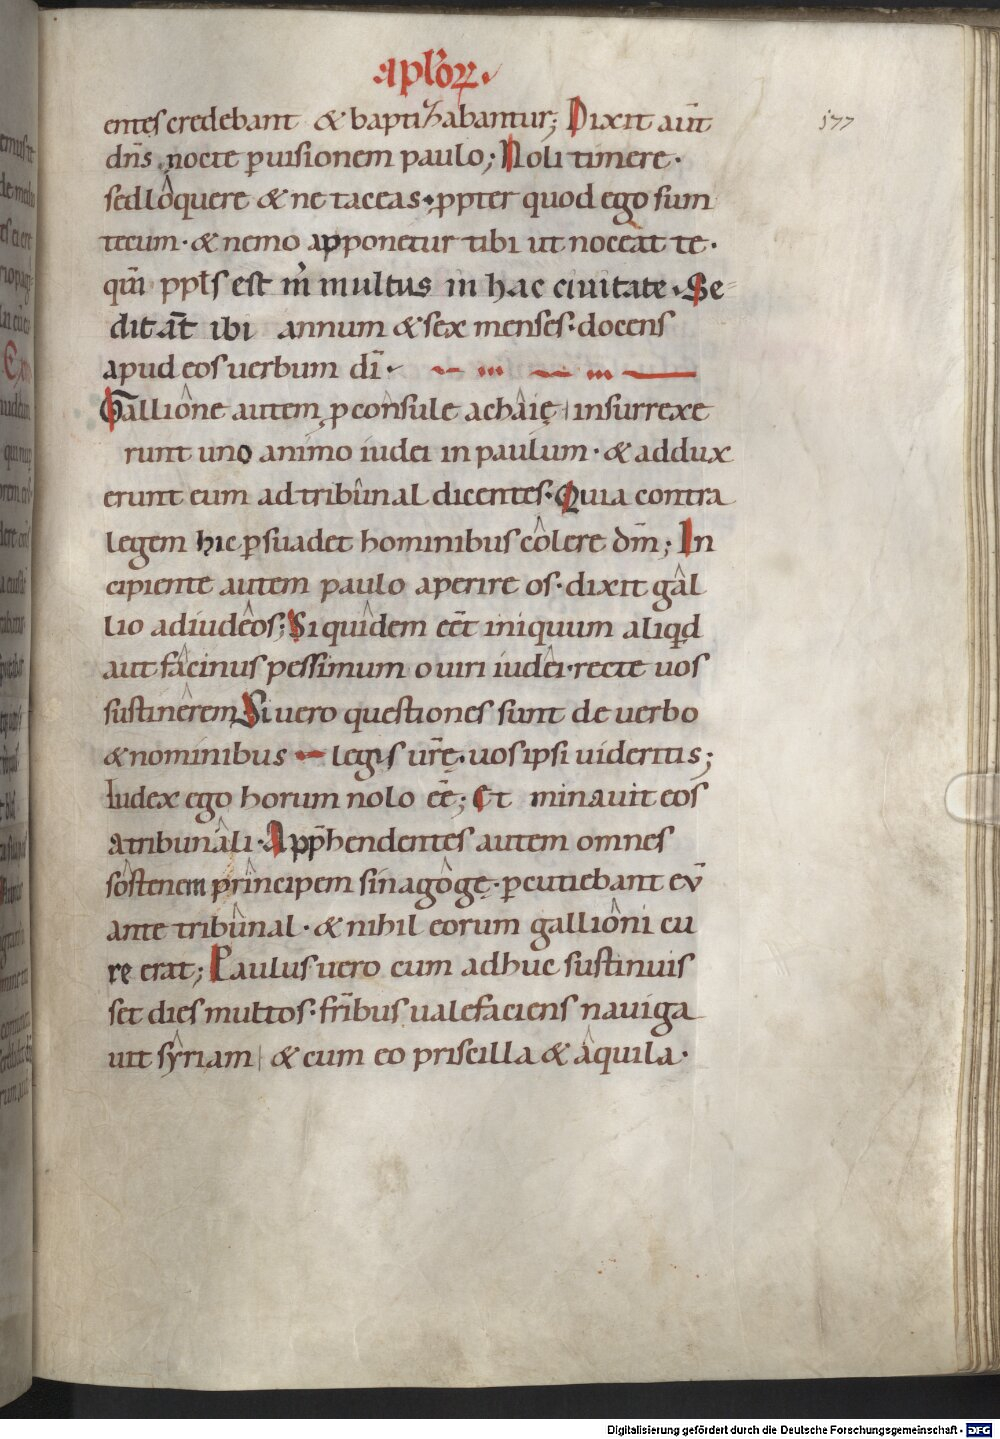 apl̄oꝝ.
577
entes credebant & baptizabantur; Dixit aūt
dn̄s nocte ꝑ uisionem paulo; Noli timere ·
sed lôquere & ne taceas · ꝓpter quod ego sum
tecum · & nemo apponetur tibi ut noceat te ·
qm̄ ppl̄s est m̄ multus in hac ciuitate · Se-
dit āt ibi annum & sex menses · docens
apud eos uerbum dī ·
Galliône autem ꝓconsule achâię insurrexe
runt uno animo iudei in paulum · & addux
erunt eum ad tribûnal dicentes · Quia contra
legem hic ꝑsuadet hominibus côlere dm̄; In
cipiente autem paulo aperire os · dixit gâl
lio ad iudêos; Si quîdem eēt iniquum aliqd
aut fâcinus pessimum o uiri iudêi · recte uos
sustinêrem Si uero questiones sunt de uerbo
& nominibus legis ur̄ę · uos ipsi uideritis;
Iudex ego horum nolo eē; Et minauit eos
a tribunâli · App̄hendentes autem omnes
sôstenem prîncipem sinagôgę · ꝑcutiebant eū
ante tribûnal · & nihil eorum galliôni cu
rę erat; Paulus uero cum adhuc sustinuis
set dies multos · fr̄ibus ualefaciens nauiga
uit sŷriam & cum eo priscilla & âquila ·
Digitalisierung gefördert durch die Deutsche Forschungsgemeinschaft - DFG